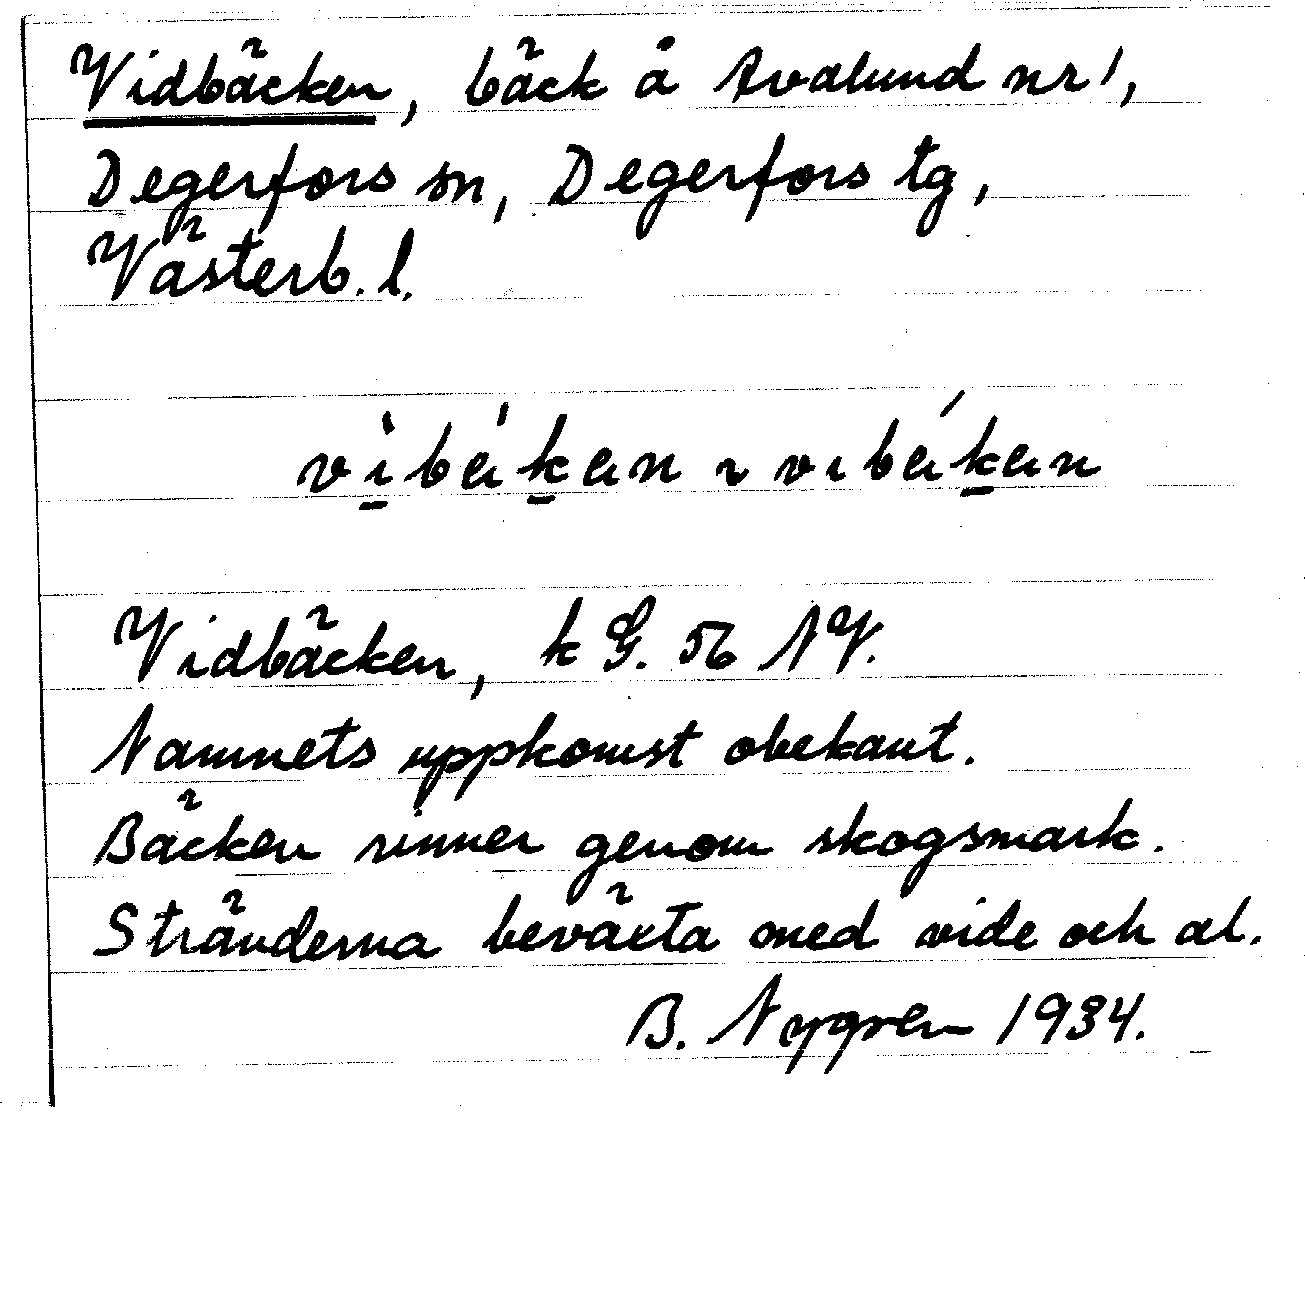 Vidbäcken, bäck å Avalund nr 1,
Degerfors sn, Degerfors tg,
Västerb. l.
Vidbäcken, k G. 56 NV.
Namnets uppkomst obekant.
Bäcken rinner genom skogsmark.
Stränderna beväxta med vide och al.
B. Nygren 1934.